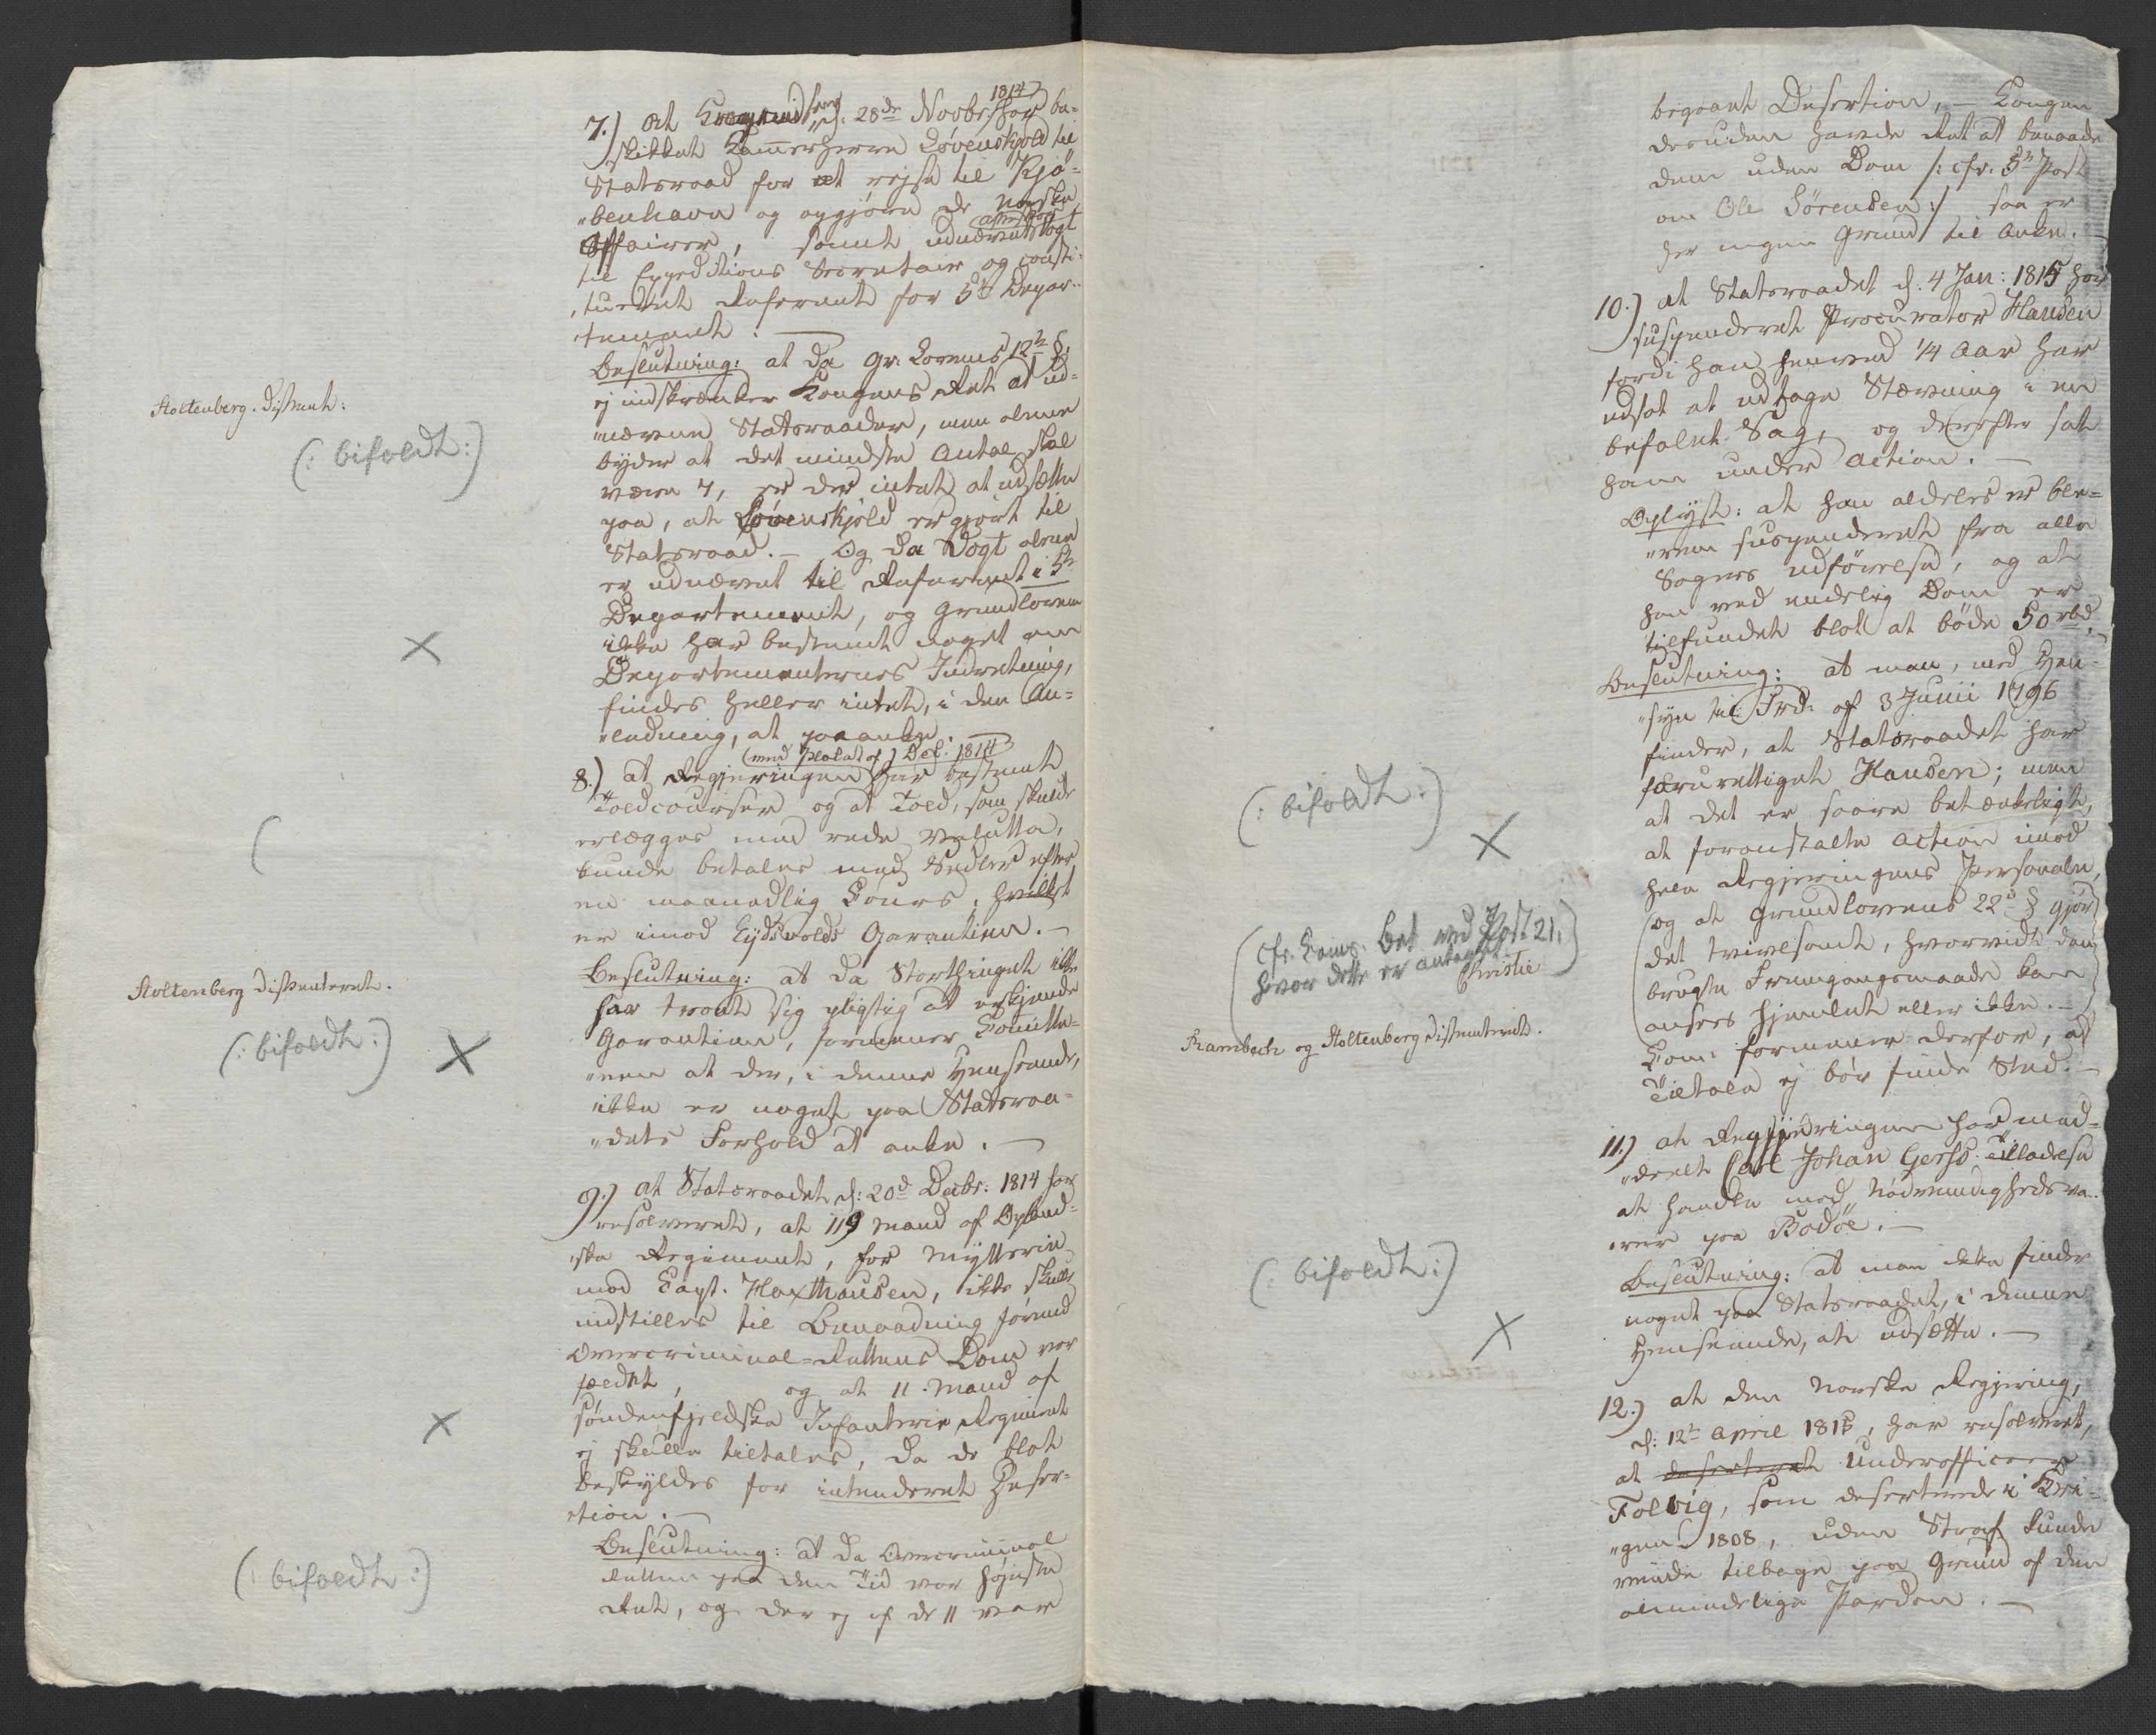 7.) at Kongen d: 28de Novbr: 1814 har be-
skikket Kammerherre Løvenskjold til
Statsraad for at rejse til Kjö-
benhavn og opgjøre de norske
Affairer, samt udnævnt Vogt
til Expeditions Secretair og consti-
tueret Referent for 5te Depar-
tement.
Beslutning: at da Gr: Lovens 12te §.
ej indskrænker Kongens Ret at ud-
nævne Statsraader, men alene
byder at det mindste Antal skal
være 7, er der intet at udsætte
paa, at Løvenskjold er gjort til
Statsraad. – Og da Vogt alene
er udnævnt til Referent i 5te
Departement, og Grundloven
ikke har bestemt noget om
Departementernes Indretning,
findes heller intet, i den An-
ledning, at paaanke.
Stoltenberg. dissent:
(: bifaldt :)
8.) at Regjeringen (med Placat af 7 Dec: 1814) har bestemt
Toldcourser og at Told, som skulde
erlægges med rede Valutta,
kunde betales med Sedler efter
en maanedlig Cours, hvilket
er imod Eydsvolds Garantien. –
Beslutning: at da Storthinget ikke
har troet sig pligtig at erkjende
Garantien, formener Comitte-
en at der, i denne Henseende,
ikke er noget paa Statsraa-
dets Forhold at anke. –
Stoltenberg dissenteret.
(: bifaldt :)
9.) at Statsraadet d: 20de Decbr: 1814 har
resolveret, at 119 Mand af Opland-
ske Regiment, for Mytterie
mod Capt. Haxthausen, ikke skulle
indstilles til Benaadning førend
Overcriminal-Rettens Dom var
fældet, og at 11 Mand af
søndenfjeldske Infanterie Regiment
ej skulle tiltales, da de blot
beskyldes for intenderet Deser-
tion. –
Beslutning: at da Overcriminal
Retten paa den Tid var højeste
Ret, og der ej af de 11 var
(: bifaldt :)
begaaet Desertion, – Kongen
desuden havde Ret at benaade
dem uden Dom /: cfr. 5te Post
om Ole Sörensen :/ saa er
her ingen Grund til Anke. –
10.) at Statsraadet d. 4 Jan: 1815 har
suspenderet Procurator Hansen
fordi han henved 1/4 Aar har
udsat at udtage Stævning i en
befalet Sag, og derefter sat
ham under Action. –
Oplyst: at han aldeles er ble-
ven suspenderet fra alle
Sagers Udførelse, og at
han ved endelig Dom er
tilfundet blot at böde 50 rbd.
Beslutning: at man, med Hen-
syn til Frd: af 3 Junii 1796
finder, at Statsraadet har
forurettiget Hansen; men
at det er saare betænkeligt,
at foranstalte Action imod
hele Regjeringens Personale,
og at Grundlovens 22de § gjør
det tvivlsomt, hvorvidt den
brugte Fremgangsmaade kan
ansees hjemlet eller ikke. –
Com: formener derfor, at
Tiltale ej bör finde Sted. –
(: bifaldt :)
(cfr. Coms. Bet ved Post 21,
hvor dette er antaget
Christie)
Rambech og Stoltenberg dissenterede.
11.) at Regjeringen har med-
deelt Carl Johan Gerss Tilladelse
at handle med Nödvendighedsva-
rer paa Bodöe. –
Beslutning: at man ikke finder
noget paa Statsraadet, i denne
Henseende, at udsætte. –
(: bifaldt :)
12.) at den norske Regjering,
d: 12te April 1815, har resolveret,
at deserteret Underofficeer
Folvig, som deserterede i Kri-
gen 1808, uden Straf kunde
vende tilbage paa Grund af den
almindelige Pardon. –